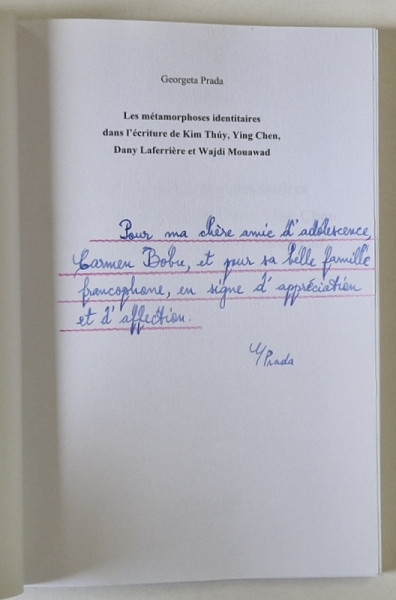 Georgeta Prada
Les métamorphoses identitaires
dans l'écriture de Kim Thúy, Ying Chen,
Dany Laferrière et Wajdi Mouawad
Pour ma chère amie d'adolescence,
Carmen Bobu, et pour sa belle famille
francophone, en signe d'appréciation
et d'affection.
Prada